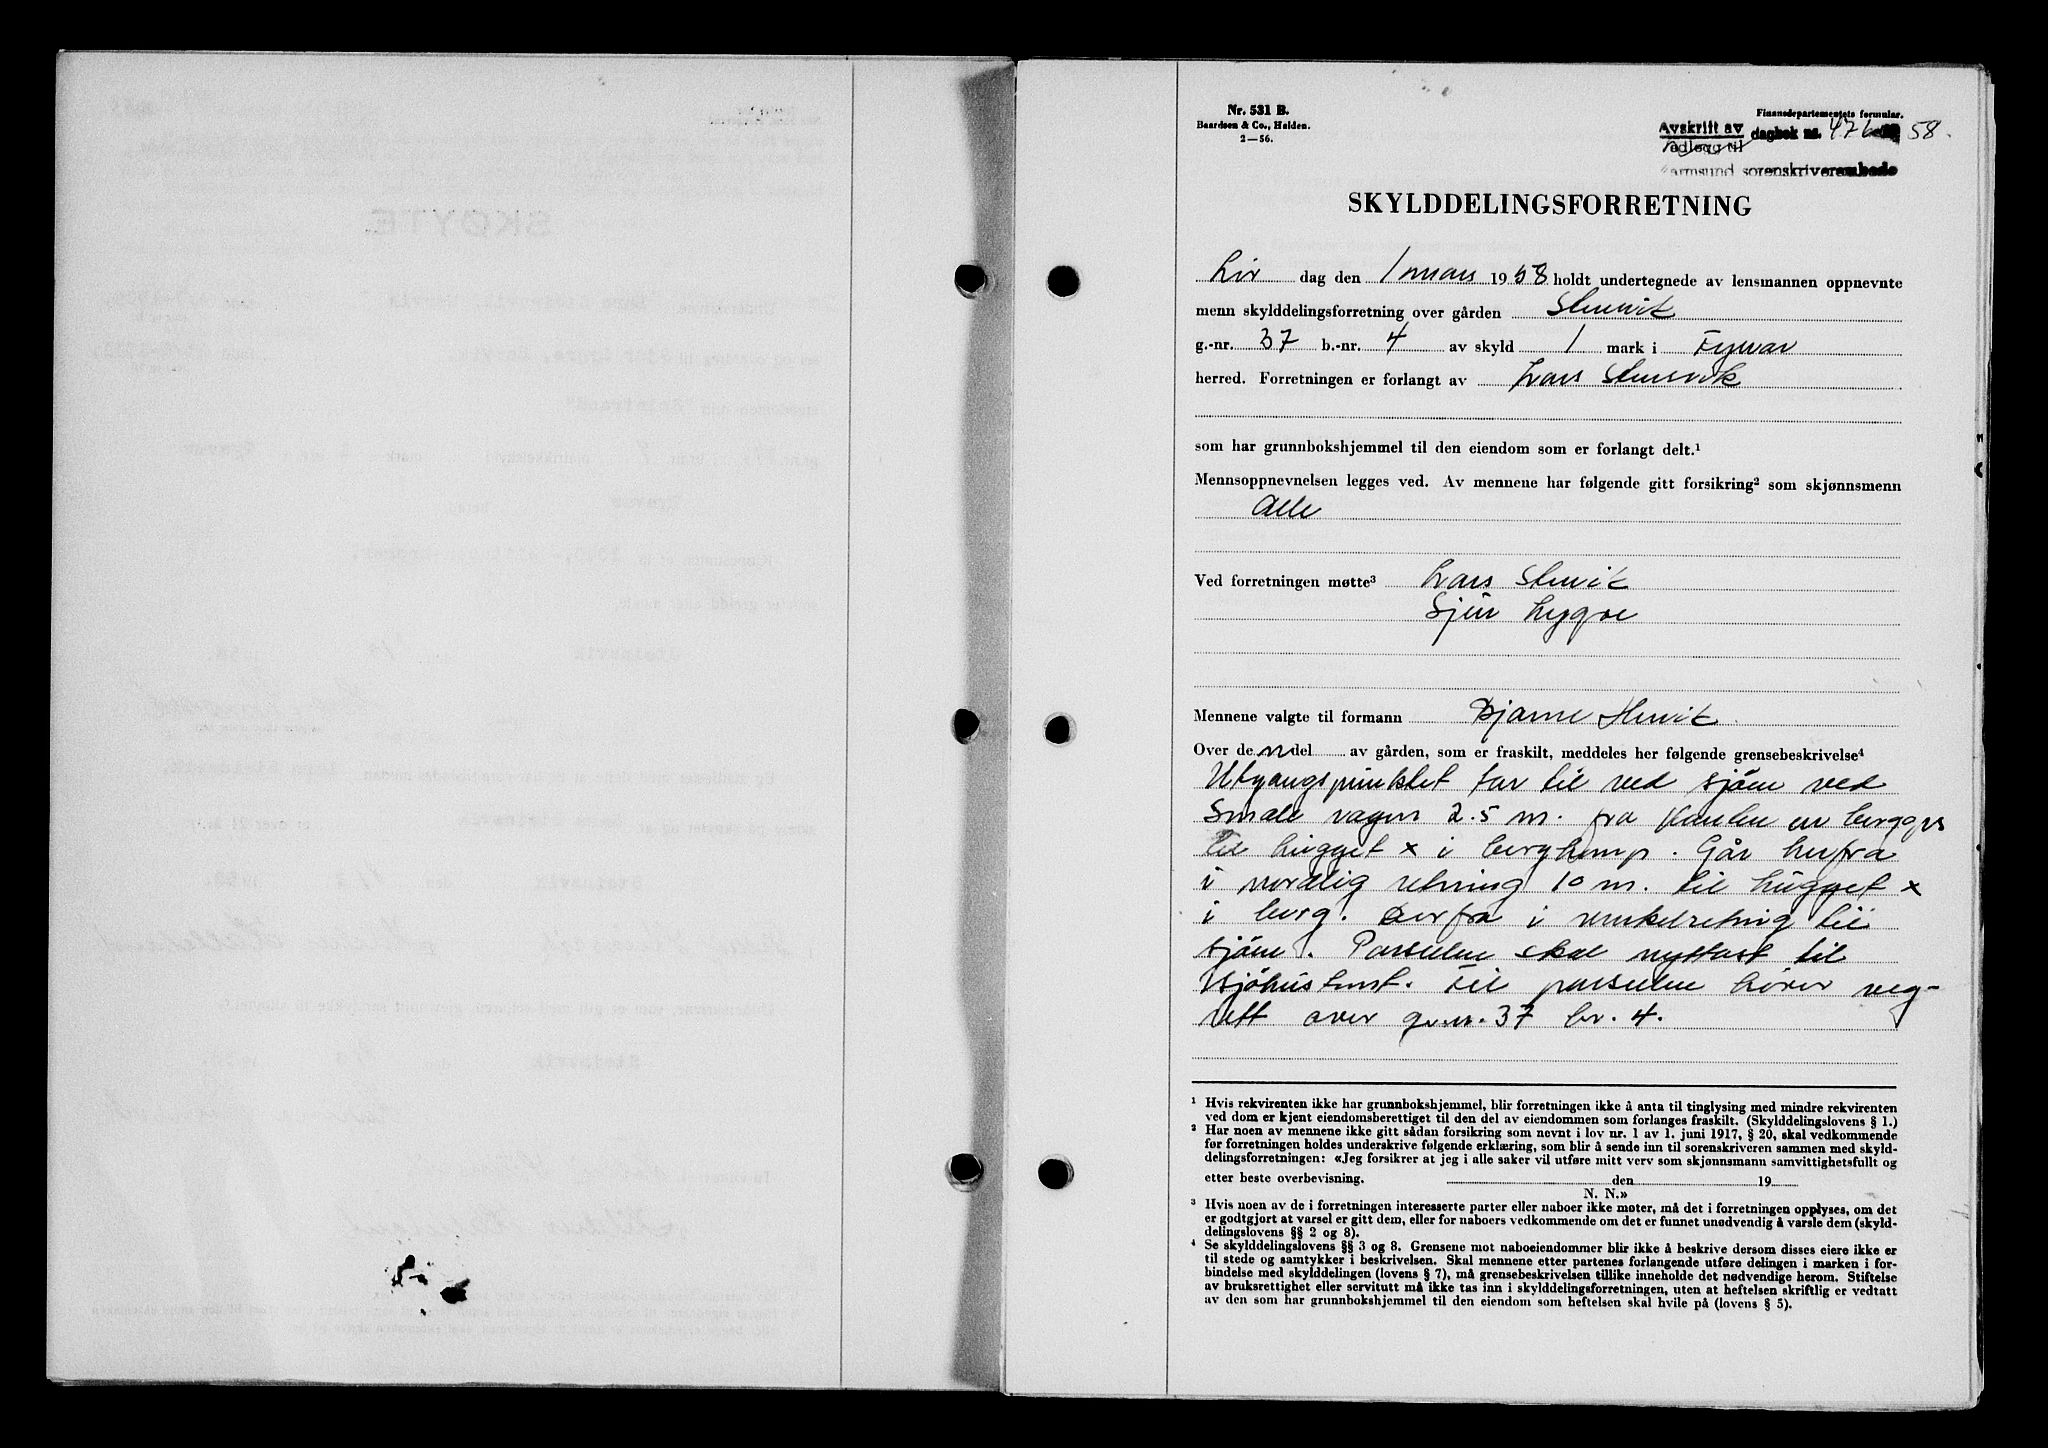 Nr. 531 B.
Baardsen & Co., Halden.
2—56.
Finansdepartementets formular.
Avskrift av
vedlegg til
dagbok nr. 58.
Karmsund sorenskriverembede
SKYLDDELINGSFORRETNING
Lør dag den 1 mars 1958 holdt undertegnede av lensmannen oppnevnte
menn skylddelingsforretning over gården
g.-nr. 37 b.-nr. 4 av skyld 1 mark i Tysvær
herred. Forretningen er forlangt av Lars
som har grunnbokshjemmel til den eiendom som er forlangt delt.¹
Mennsoppnevnelsen legges ved. Av mennene har følgende gitt forsikring² som skjønnsmenn
Alle
Ved forretningen møtte³ Lars
Lygre
Mennene valgte til formann Bjarne
Over den del av gården, som er fraskilt, meddeles her følgende grensebeskrivelse⁴
Utgangspunktet tar til ved sjøen ved
Smale vagen 2.5 m. fra kanten
til hugget x i berg. Går herfra
i nordlig retning 10 m. til hugget x
i berg. Derfra i vinkelretning til
sjøen. Parsellen skal nyttast til
sjøhustomt. Til parsellen hører veg-
rett over g.nr. 37 br. 4.
¹ Hvis rekvirenten ikke har grunnbokshjemmel, blir forretningen ikke å anta til tinglysing med mindre rekvirenten
ved dom er kjent eiendomsberettiget til den del av eiendommen som forlanges fraskilt. (Skylddelingslovens § 1.)
² Har noen av mennene ikke gitt sådan forsikring som nevnt i lov nr. 1 av 1. juni 1917, § 20, skal vedkommende
før forretningen holdes underskrive følgende erklæring, som blir å sende inn til sorenskriveren sammen med skyld-
delingsforretningen: «Jeg forsikrer at jeg i alle saker vil utføre mitt verv som skjønnsmann samvittighetsfullt og
etter beste overbevisning. den 19
N. N.»
³ Hvis noen av de i forretningen interesserte parter eller naboer ikke møter, må det i forretningen opplyses, om det
er godtgjort at varsel er gitt dem, eller for naboers vedkommende om det er funnet unødvendig å varsle dem (skyld-
delingslovens §§ 2 og 8).
⁴ Se skylddelingslovens §§ 3 og 8. Grensene mot naboeiendommer blir ikke å beskrive dersom disses eiere ikke er
til stede og samtykker i beskrivelsen. Skal mennene etter partenes forlangende utføre delingen i marken i for-
bindelse med skylddelingen (lovens § 7), må grensebeskrivelsen tillike inneholde det nødvendige herom. Stiftelse
av bruksrettighet eller servitutt må ikke tas inn i skylddelingsforretningen, uten at heftelsen skriftlig er vedtatt
av den som har grunnbokshjemmel til den eiendom som heftelsen skal hvile på (lovens § 5).